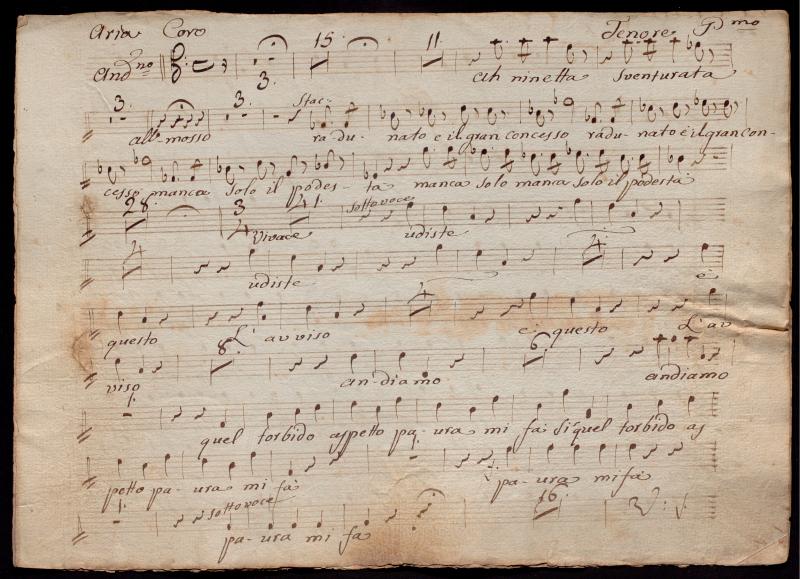 Aria Coro Tenore P.mo
And.no 3. 15. 11.
Ah ninetta Sventurata
3. 3. Stac:
all:mosso radu- nato e il gran concesso radu- nato è il gran con-
cesso manca Solo il podes- tà manca solo manca solo il podestà
28. 3 41. Sottovoce
4 Vivace udiste
4 4.
udiste è
4
questo L'avviso e questo L'av
8. 6.
viso andiamo andiamo
1.
quel torbido aspetto pa- ura mi fà Si quel torbido as
1.
petto pa- ura mi fà pa- ura mi fà
1. Sottovoce 16.
pa- ura mi fa V: S.